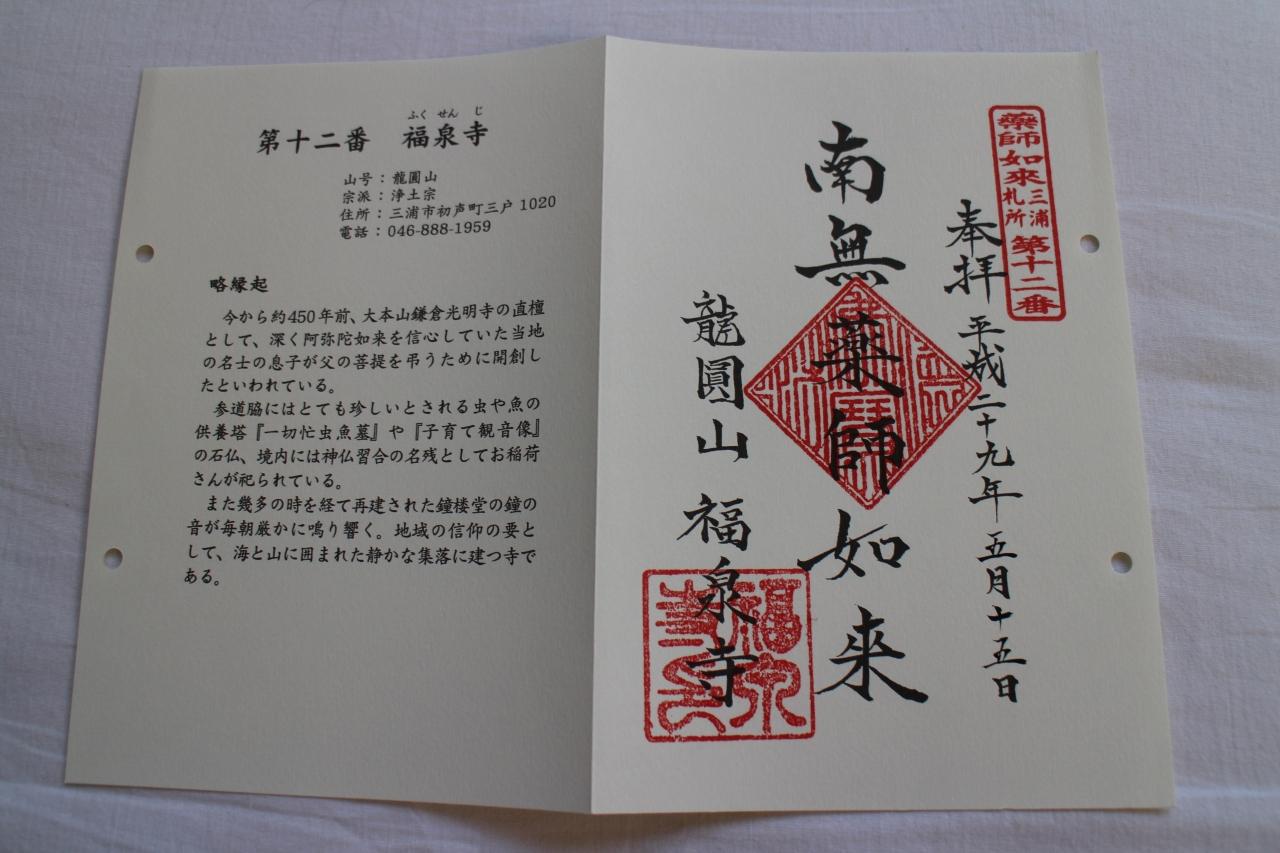 ふく せん じ
第十二番 福泉寺
山号:龍圓山
宗派:浄土宗
住所:三浦市初声町三戸 1020
電話:046-888-1959
略縁起
今から約450年前、大本山鎌倉光明寺の直檀
として、深く阿弥陀如来を信心していた当地
の名士の息子が父の菩提を弔うために開創し
たといわれている。
参道脇にはとても珍しいとされる虫や魚の
供養塔『一切忙虫魚墓』や『子育て観音像』
の石仏、境内には神仏習合の名残としてお稲荷
さんが祀られている。
また幾多の時を経て再建された鐘楼堂の鐘の
音が毎朝厳かに鳴り響く。地域の信仰の要と
して、海と山に囲まれた静かな集落に建つ寺で
ある。
藥師如來三浦札所第十二番
奉拝 平成二十九年 五月十五日
南無薬師如来
龍圓山 福泉寺